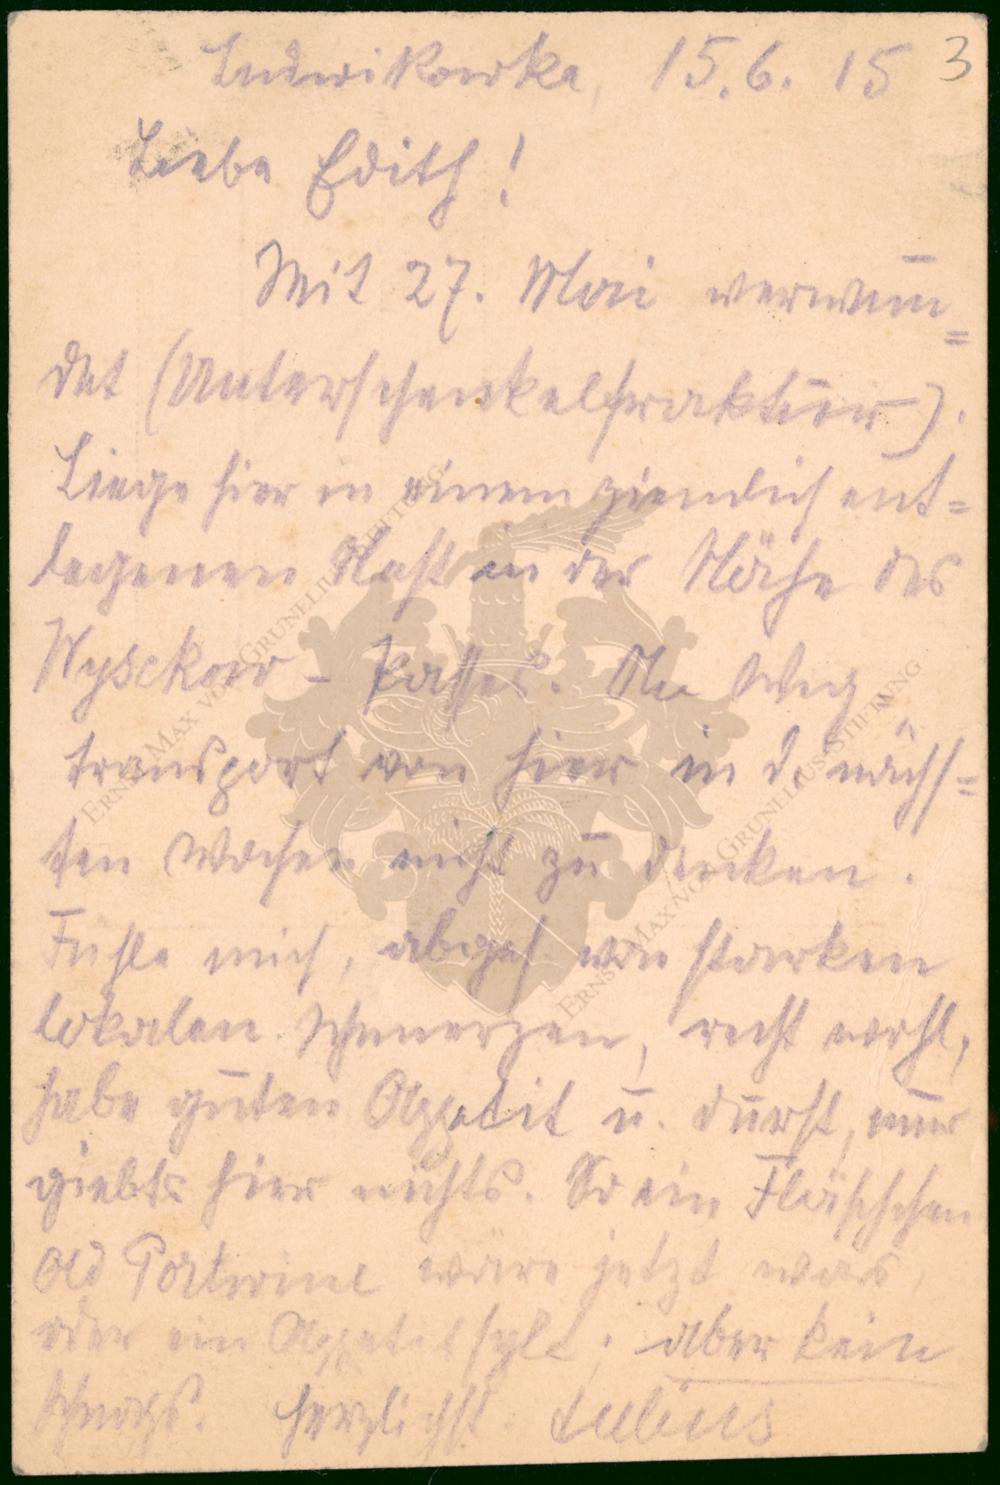 Ludwikowka, 15.6.15 3
Liebe Edith!
Mit 27. Mai verwun=
det (Unterschenkelfraktur).
Liege hier in einem ziemlich ent=
legenen Nest in der Nähe des
Wysckow-Passes. An Weg
transport von hier in d. nächs=
ten Wochen nicht zu denken.
Fühle mich, abgeh. von starken
lokalen Schmerzen, recht wohl,
habe guten Appetit u. Durst, nur
giebts hier nichts. So ein Fläschchen
old Portwine wäre jetzt was,
oder ein Appetitsylt; aber kein
Schnaps. Herzlichst
ERNST MAX VON GRUNELIUS-STIFTUNG
ERNST MAX VON GRUNELIUS-STIFTUNG